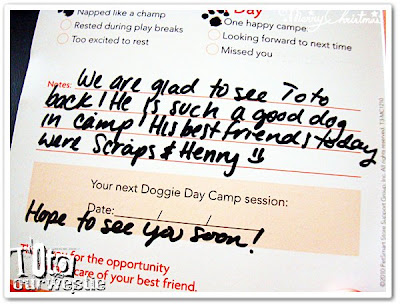 Merry Christmas
Napped like a champ
Rested during play breaks
Too excited to rest
Day
One happy camper
Looking forward to next time
Missed you
Notes: We are glad to see Toto
back! He is such a good dog
in camp! His best friends today
were Scraps & Henny
Your next Doggie Day Camp session:
Date: / /
Hope to see you soon!
for the opportunity
care of your best friend.
Toto
ourwestie